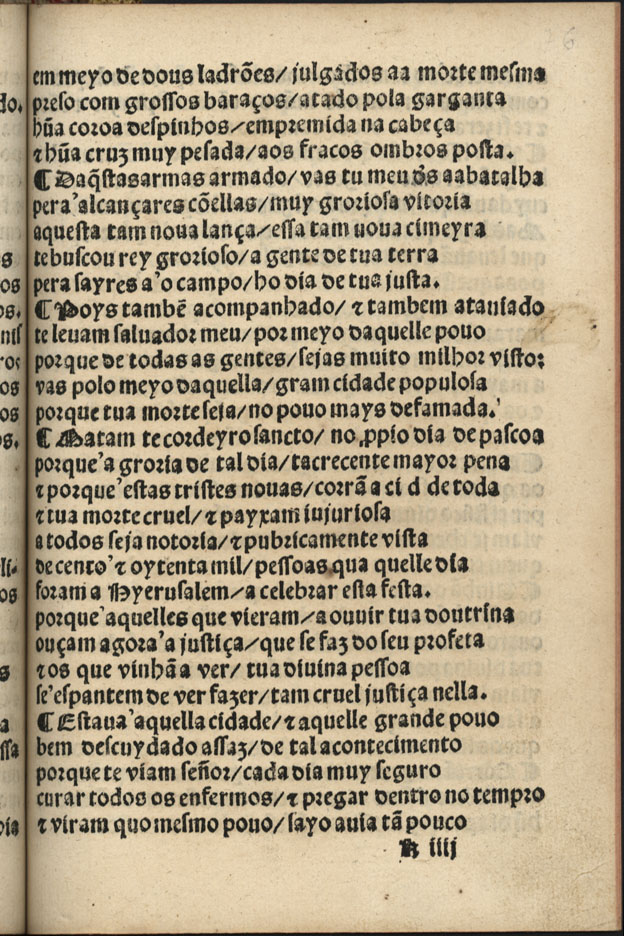 em meyo de dous ladrões/ julgados aa morte mesma
preso com grossos baraços/atado pola garganta
hũa coroa despinhos/empremida na cabeça
⁊ hũa cruz muy pesada/aos fracos ombros posta.
¶ Daq̃stasarmas armado/vas tu meu d̃s aabatalha
pera'alcançares cõellas/muy groriosa vitoria
aquesta tam noua lança/essa tam uoua cimeyra
tebuscou rey grorioso/a gente de tua terra
pera sayres a'o campo/ho dia de tua justa.
¶ Poys tambẽ acompanhado/⁊ tambem atauiado
te leuam saluador meu/por meyo daquelle pouo
porque de todas as gentes/sejas muito milhor visto:
vas polo meyo daquella/gram cidade populosa
porque tua morte seja/no pouo mays defamada.
¶ Matam te cordeyro sancto/no ꝓpio dia de pascoa
porque'a groria de tal dia/tacrecente mayor pena
⁊ porque'estas tristes nouas/corrã a ci d de toda
⁊ tua morte cruel/⁊ payxam iujuriosa
a todos seja notoria/⁊ pubricamente vista
de cento'⁊ oytenta mil/pessoas qua quelle dia
foram a Hyerusalem/a celebrar esta festa.
porque'aquelles que vieram/a ouuir tua doutrina
ouçam agora'a justiça/que se faz do seu profeta
⁊ os que vinhã a ver/tua diuina pessoa
se'espantem de ver fazer/tam cruel justiça nella.
¶ Estaua'aquella cidade/⁊ aquelle grande pouo
bem descuydado assaz/de tal acontecimento
porque te viam señor/cada dia muy seguro
curar todos os enfermos/⁊ pregar dentro no tempro
⁊ viram quo mesmo pouo/sayo auia tã pouco
K iiij